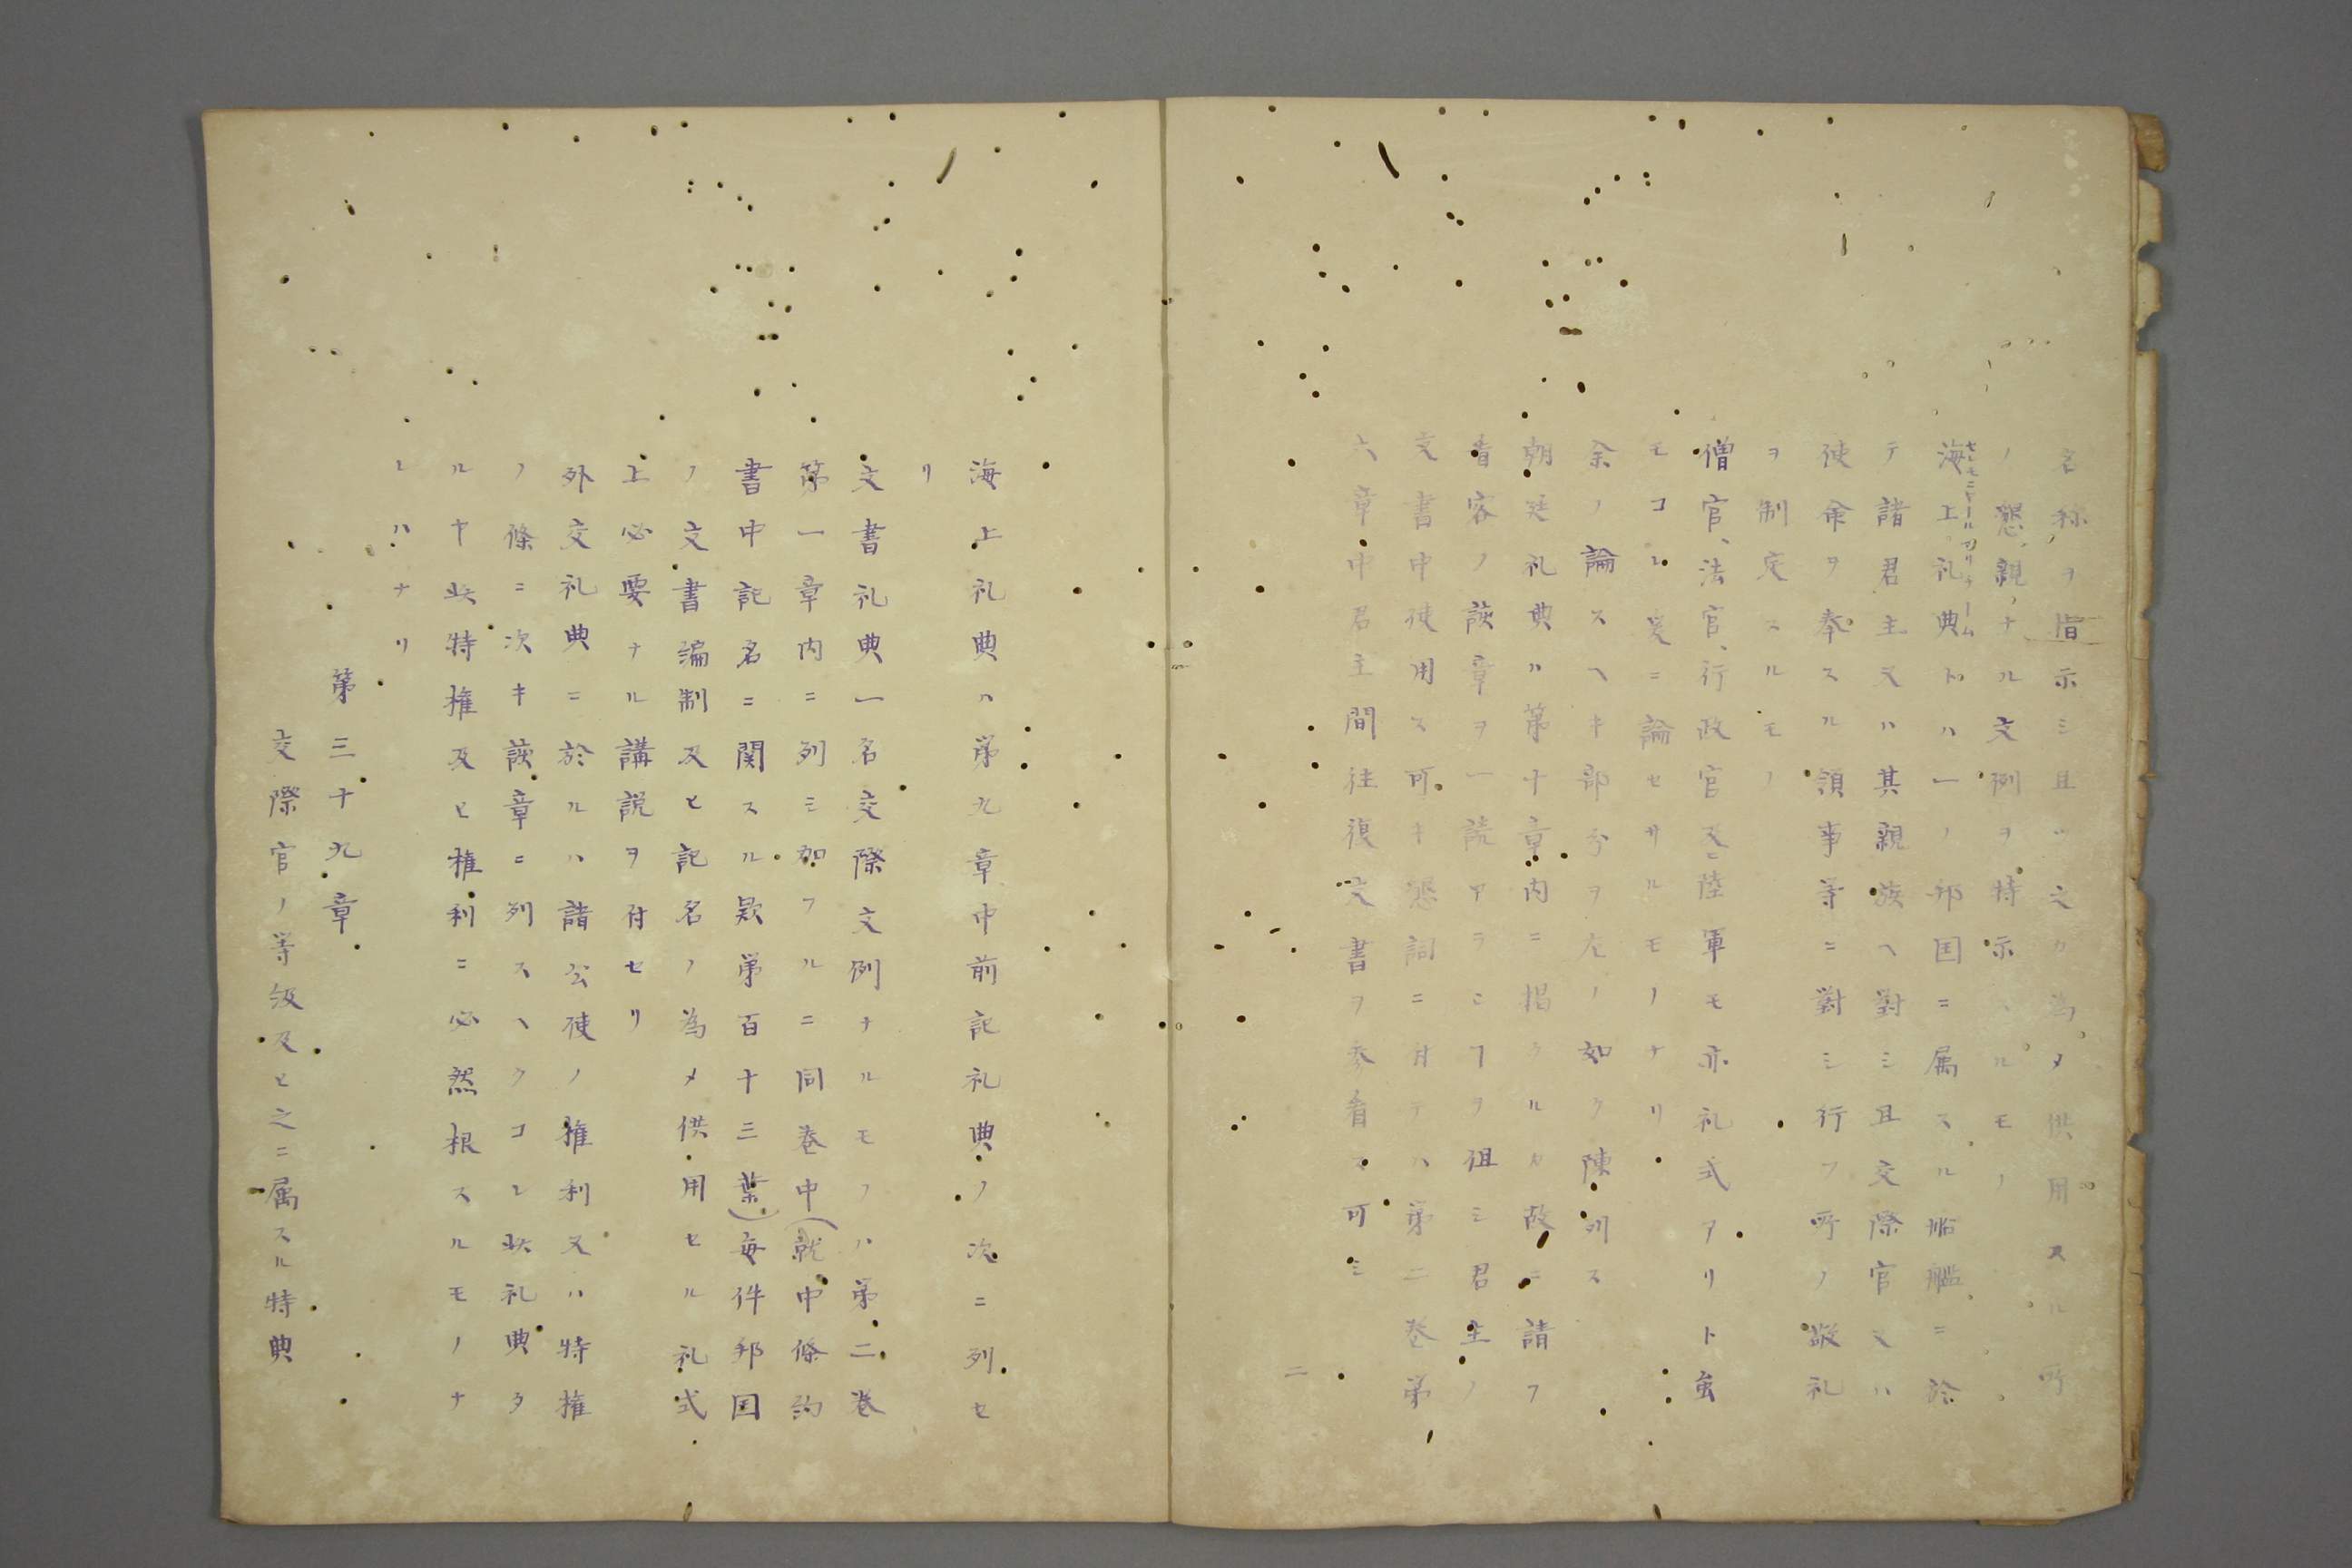 名称ヲ指示シ且ツ之カ為メ供用スル所
ノ懇親ナル文例ヲ特示スルモノ
セレモニヤールマリチーム
海上礼典トハ一ノ邦国ニ属スル船艦ニ於
テ諸君主又ハ其親族ヘ對シ且交際官又ハ
使命ヲ奉スル領事等ニ對シ行フ所ノ敬礼
ヲ制定スルモノ
僧官、法官、行政官及ヒ陸軍モ亦礼式アリト虽
モコレ爰ニ論セサルモノナリ
余ノ論スヘキ部分ヲ左ノ如ク陳列ス
朝廷礼典ハ第十章内ニ掲クルカ故ニ請フ
看客ノ該章ヲ一読アランヿヲ但シ君主ノ
文書中使用ス可キ懇詞ニ付テハ第二巻第
六章中君主間往復文書ヲ参看ス可シ
二
海上礼典ハ第九章中前記礼典ノ次ニ列セ
リ
文書礼典一名交際文例ナルモノハ第二巻
第一章内ニ列シ加フルニ同巻中(就中條約
書中記名ニ関スル欵第百十三葉)毎件邦国
ノ文書編制及ヒ記名ノ為メ供用セル礼式
上必要ナル講説ヲ付セリ
外交礼典ニ於ルハ諸公使ノ権利又ハ特権
ノ條ニ次キ該章ニ列スヘクコレ此礼典タ
ルヤ此特権及ヒ権利ニ必然根スルモノナ
レハナリ
第三十九章
交際官ノ等級及ヒ之ニ属スル特典